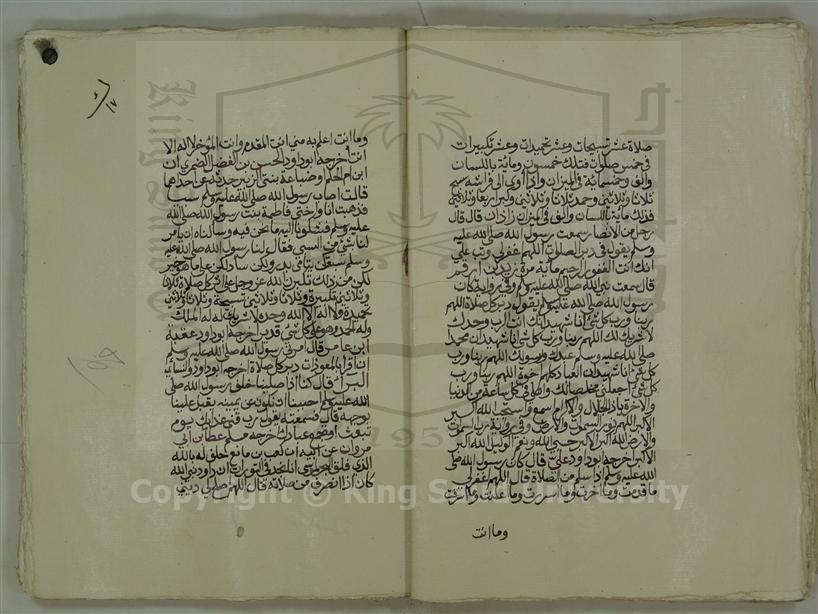 صلاة عشر تسبيحات وعشر تحميدات وعشر تكبيرات
في خمس صلوات فتلك خمسون ومائة باللسان
والف وخمسمائة في الميزان واذا أوى الى فراشه سبح
ثلاثا وثلاثين وحمد ثلاثا وثلاثين وكبر اربعا وثلاثين
فذلك مائة باللسان والف في الميزان زاذان قال قال
رجل من الانصار سمعت رسول الله صلى الله عليه
وسلم يقول في دبر الصلوات اللهم اغفر لي وتب علي
انك انت الغفور الرحيم مائة مرة زيد بن ارقم
قال سمعت نبي الله صلى الله عليه وسلم وفي رواية كان
رسول الله صلى الله عليه وسلم يقول دبر كل صلاة اللهم
ربنا ورب كل شئ انا شهيد انك انت الرب وحدك
لا شريك لك اللهم ربنا ورب كل شئ انا شهيد ان محمدا
صلى الله عليه وسلم عبدك ورسولك اللهم ربنا ورب
كل شئ انا شهيد ان العباد كلهم اخوة اللهم ربنا ورب
كل شئ اجعلني مخلصا لك واهلي في كل ساعة من الدنيا
والاخرة ياذا الجلال والاكرام اسمع واستجب الله اكبر
الاكبر اللهم نور السموات والارض وفي رواية رب السموات
والارض الله اكبر الاكبر حسبي الله ونعم الوكيل الله اكبر
الاكبر اخرجه ابو داود علي قال كان رسول الله صلى
الله عليه وسلم اذا سلم من الصلاة قال اللهم اغفر لي
ما قدمت وما اخرت وما اسررت وما اعلنت وما اسرفت
وما انت
وما انت اعلم به مني انت المقدم وانت المؤخر لا اله الا
انت اخرجه ابو داود الحسن بن الفضل الضمري ان
ابن ام الحكم او ضباعة بنتي الزبير حدثه عن احداهما
قالت اصاب رسول الله صلى الله عليه وسلم سبيا
فذهبت انا واختي فاطمة بنت رسول الله صلى الله
عليه وسلم فشكونا اليه ما نحن فيه وسألناه ان يامر
لنا بشئ من السبي فقال لنا رسول الله صلى الله عليه
وسلم سبقكن يتامى بدر ولكن سأدلكن على ما هو خير
لكن من ذلك تكبرن الله عز وجل على اثر كل صلاة ثلاثا
وثلاثين تكبيرة وثلاثا وثلاثين تسبيحة وثلاثا وثلاثين
تحميدة ولا اله الا الله وحده لا شريك له له الملك
وله الحمد وهو على كل شئ قدير اخرجه ابو داود عقبة
ابن عامر قال امرني رسول الله صلى الله عليه وسلم
ان اقرأ بالمعوذات دبر كل صلاة اخرجه ابو داود والنسائي
البراء قال كنا اذا صلينا خلف رسول الله صلى
الله عليه وسلم احببنا ان نكون عن يمينه يقبل علينا
بوجهه قال فسمعته يقول رب قني عذابك يوم
تبعث او تجمع عبادك اخرجه مسلم عطا بن ابي
مروان عن ابيه ان كعب بن مانع حلف له بالله
الذي فلق البحر لموسى انا لنجد في التوراة ان داود نبي الله
كان اذا انصرف من صلاته قال اللهم اصلح لي ديني
Copyright © King Saud University